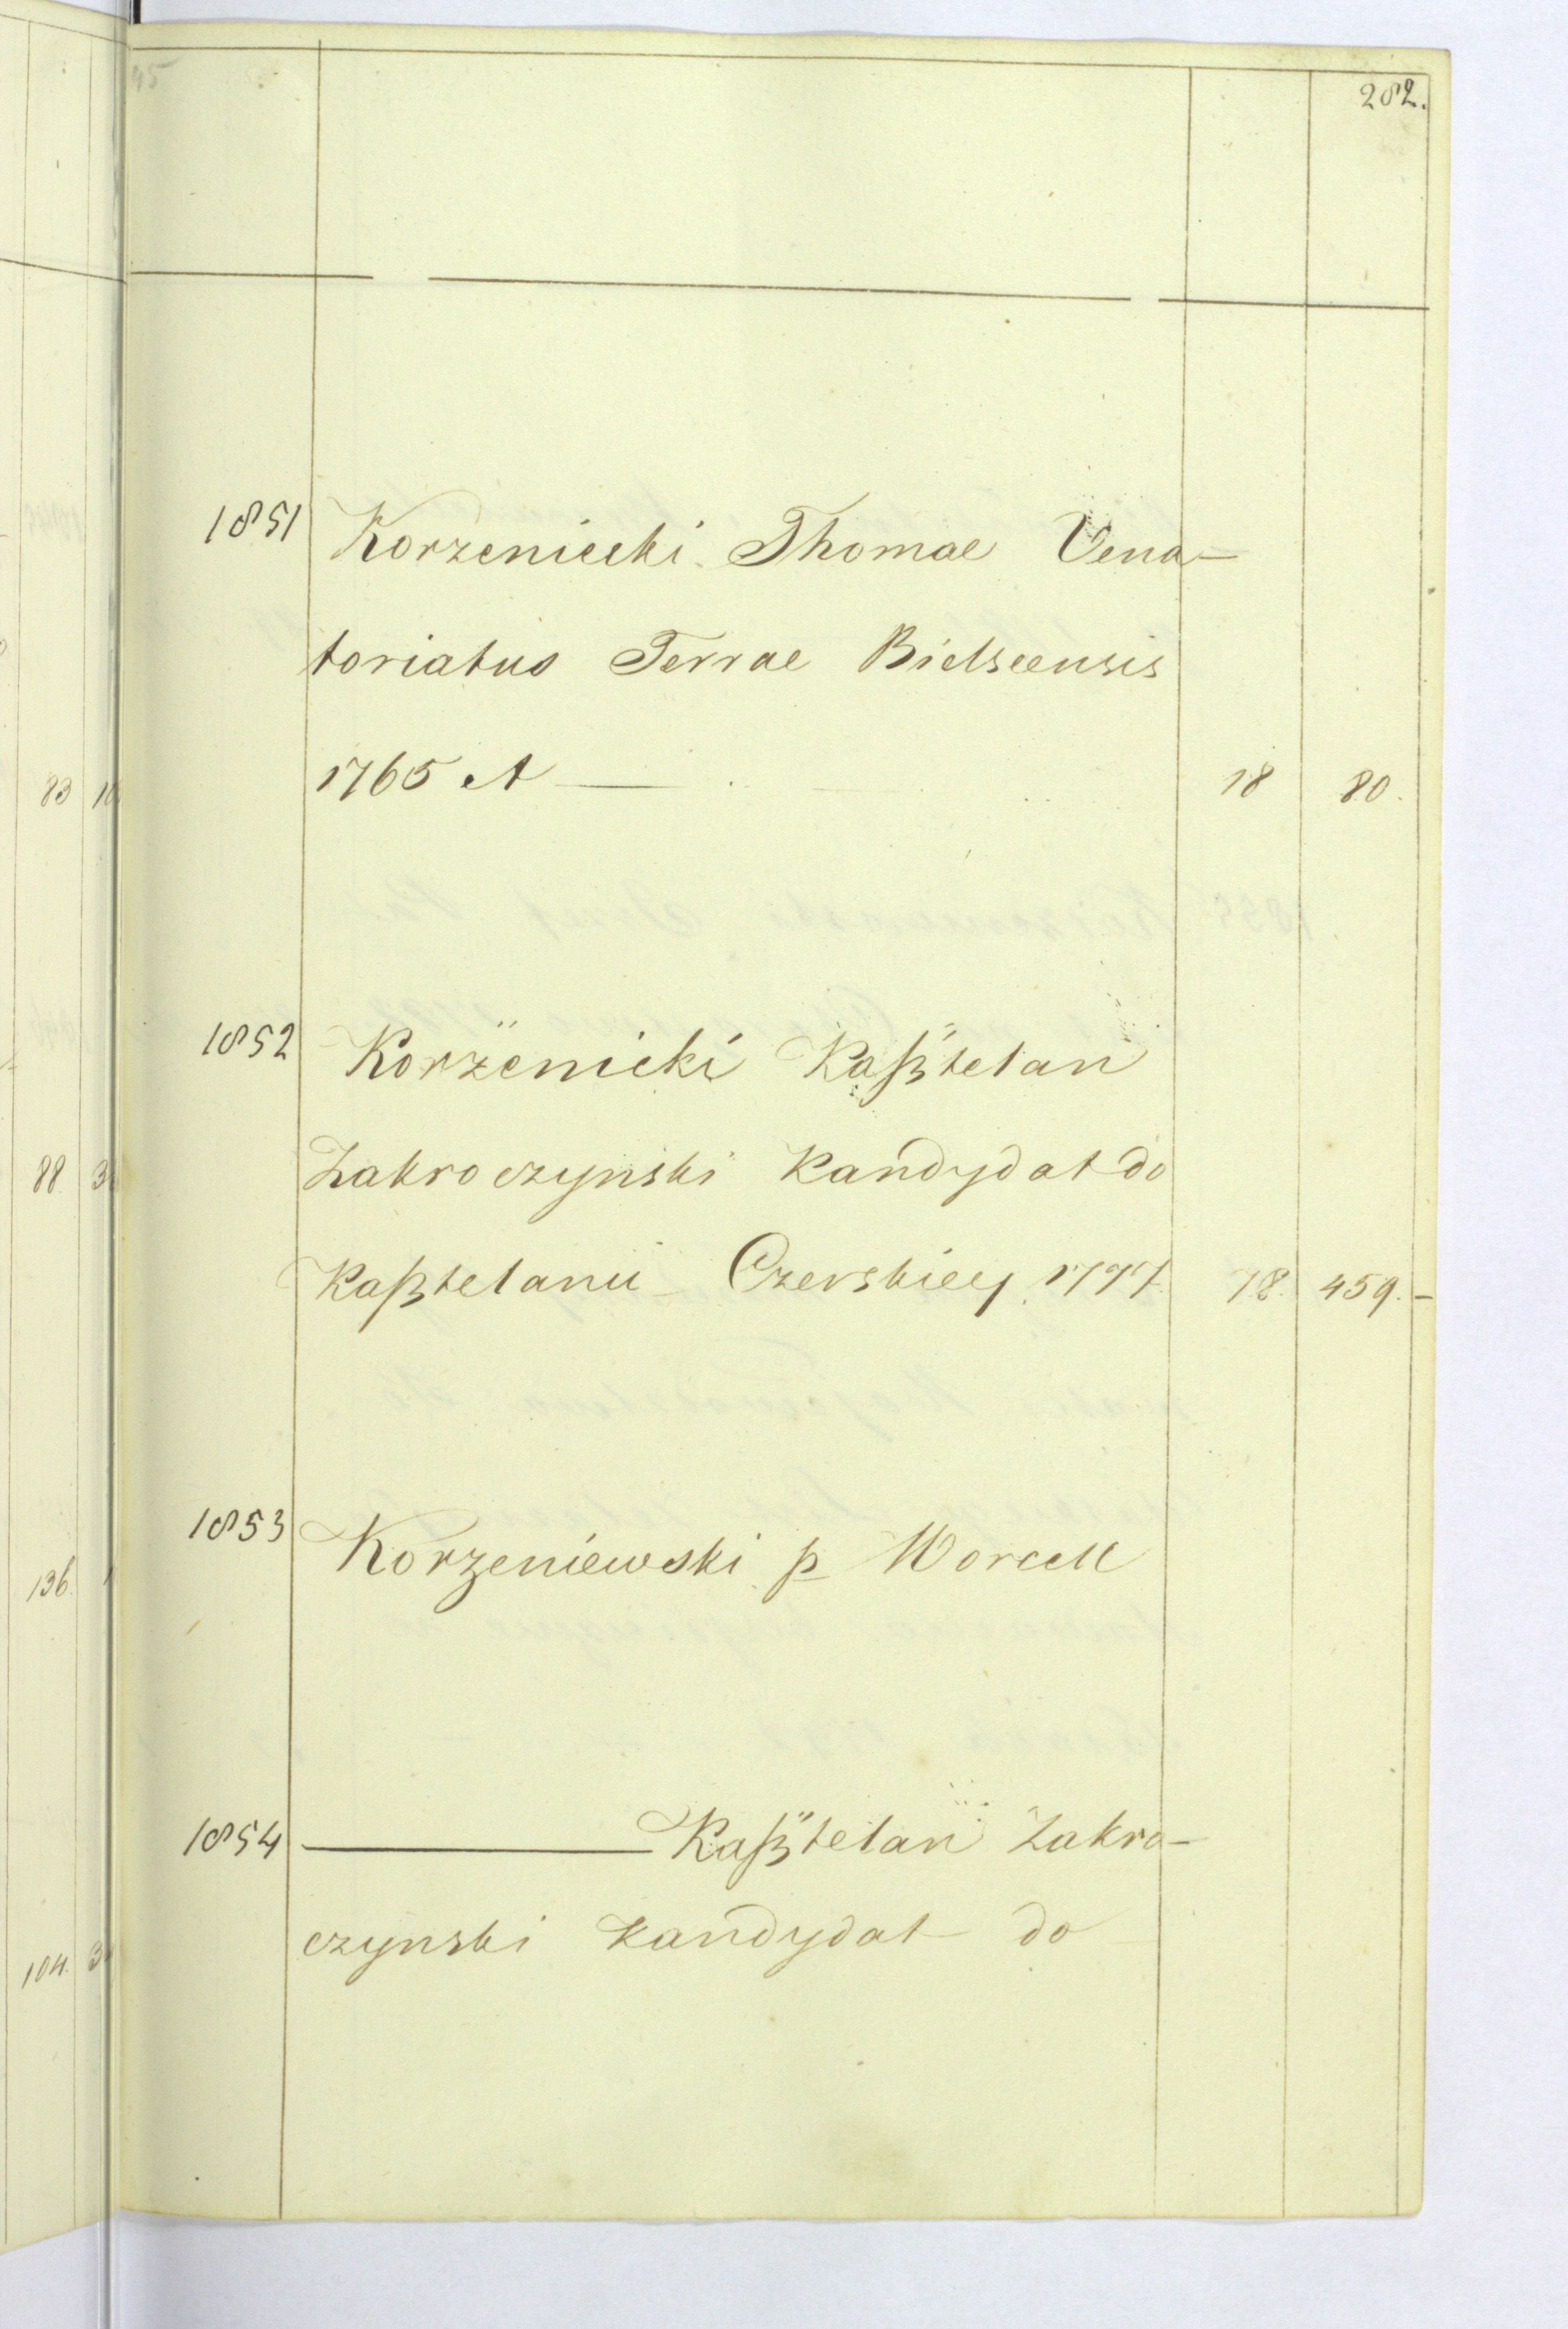 45
282.
1851 Korzeniecki Thomae Vena-
toriatus Terrae Bielscensis
1765 A — 18 80.
1852 Korżenicki Kaßtelan
Zakroczynski Kandydat do
Kaßtelanii Czerskiey 1777 78. 459.-
1853 Korzeniewski p Worcell
1854 ——— Kaßtelan Zakro-
czynski Kandydat do
83
88
136.
104.